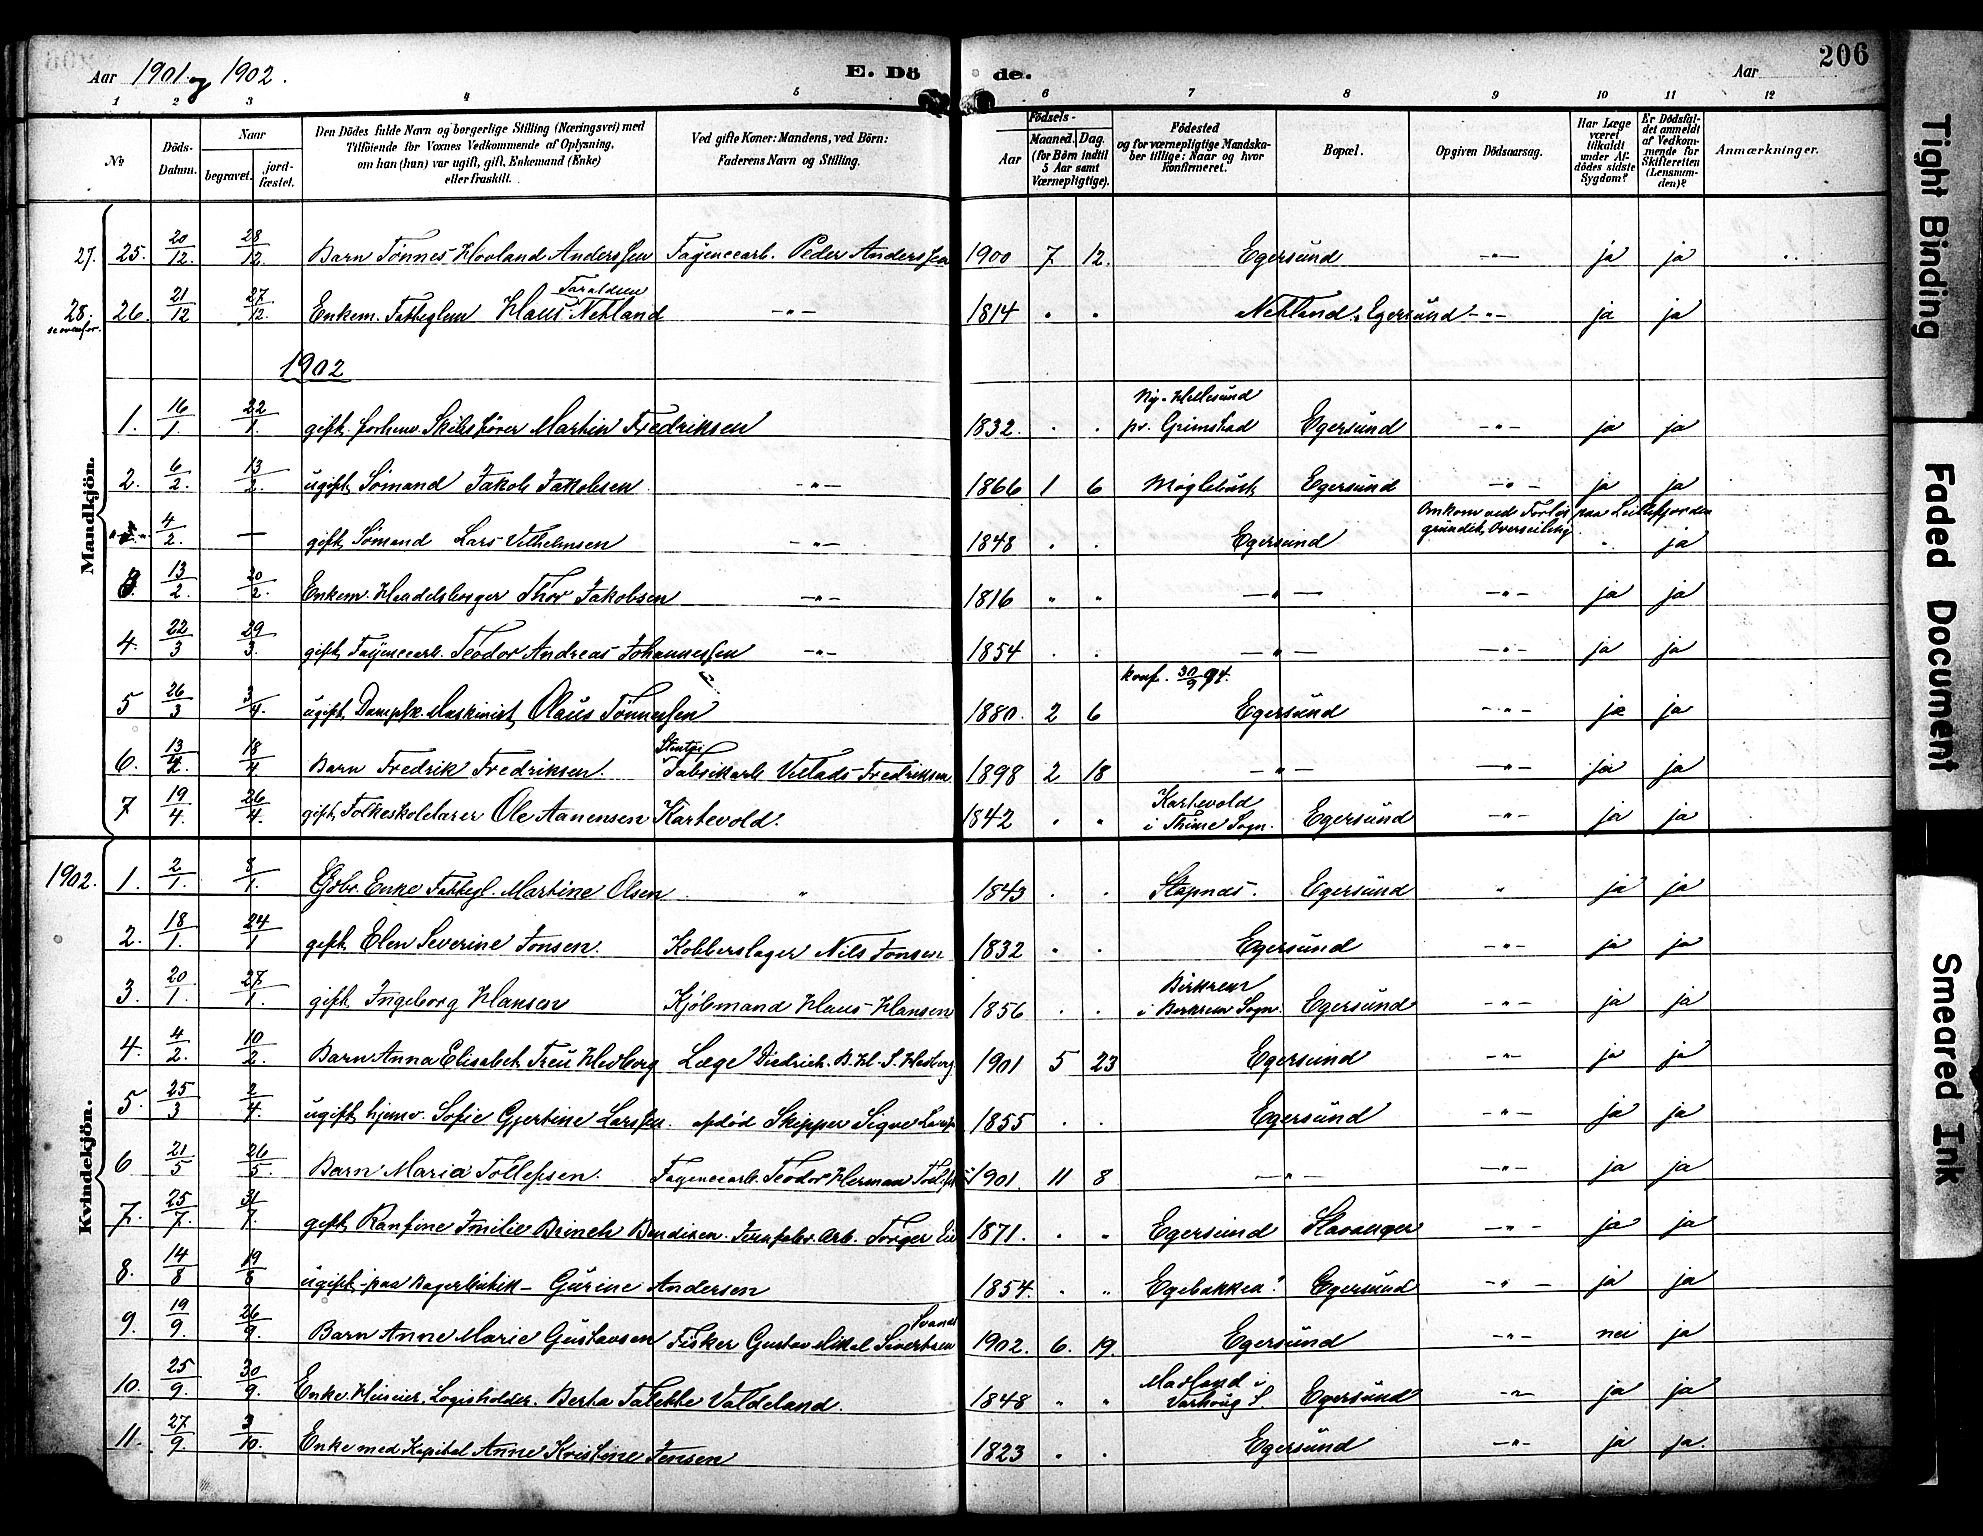 206
Aar 1901 og 1902.
E. Dö de.
Aar
1 2 3 4 5 6 7 8 9 10 11 12
No
Döds-Datum.
Naar begravet. jord-fæstet.
Den Dödes fulde Navn og borgerlige Stilling (Næringsvei) med Tilföiende for Voxnes Vedkommende af Oplysning, om han (hun) var ugift, gift, Enkemand (Enke) eller fraskilt.
Ved gifte Koner: Mandens, ved Börn: Faderens Navn og Stilling.
Födsels-
Aar
Maaned. Dag. (for Börn indtil 5 Aar samt Værnepligtige).
Födested og for værnepligtige Mandskaber tillige: Naar og hvor konfirmeret.
Bopæl.
Opgiven Dödsaarsag.
Har Læge været tilkaldt under Afdödes sidste Sygdom?
Er Dödsfaldet anmeldt af Vedkommende for Skifteretten (Lensmanden)?
Anmærkninger.
Mandkjön.
27. 25. 20/12 28/12 Barn Tönnes Hovland Anderssen Fayencearb. Peder Anderssen 1900 7 12. Egersund -"- ja ja
28. 26. 21/12 27/12. Enkem. Fattiglem Klaus Taraldsen Netland -"- 1814 " " Netland, Egersund -"- ja ja
1902
1. 16/1 22/1. gift, forhenv. Skibsfører Martin Fredriksen 1832. " " Ny-Hellesund pr. Grimstad Egersund -"- ja ja
2. 6/2. 13/2. ugift Sømand Jakob Jakobsen -"- 1866 1 6 Møglebust Egersund -"- ja ja
4/2. — gift, Sømand Lars Vilhelmsen -"- 1848 " " Egersund Omkom ved Forlis paa Listerfjorden grundet Overseiling " ja
3. 13/2. 20/2. Enkem. Handelsborger Thor Jakobsen -"- 1816 " " -"- -"- ja ja
4. 22/3 29/3. gift, Fayencearb. Teodor Andreas Johannessen -"- 1854 " " -"- -"- ja ja
5 26/3 3/4. ugift, Dampsk. Maskinist, Olaus Tönnessen 1880. 2 6 konf. 30/9 94. Egersund -"- ja ja
6. 13/4. 18/4 Barn Fredrik Fredriksen. Stentøi Fabrikarb. Villads Fredriksen 1898 2 18 -"- -"- ja ja
7 19/4. 26/4. gift, Folkeskolelærer Ole Aanensen Kartevold. 1842 " " Kartevold i Thime Sogn. Egersund -"- ja ja
Kvindekjön.
1902. 1. 2/1. 8/1. Enke Fattigl. Martine Olsen " 1843 " " Stapnæs. Egersund " ja ja
2. 18/1. 24/1 gift, Elen Severine Jonsen. Kobberslager Nils Jonsen 1832 " " Egersund -"- ja ja
3. 20/1. 27/1. gift, Ingeborg Hansen Kjöbmand Klaus Hansen 1856 " " Birkrem i Birkrem Sogn. Egersund -"- ja ja
4. 4/2. 10/2. Barn Anna Elisabet Treu Hedberg Læge Diedrich. B. Hl. S. Hedberg 1901 5 23 Egersund -"- ja ja
5. 25/3 2/4. ugift, hjemv. Sofie Gjertine Larssen. afdöd Skipper Sigve 1855 " " Egersund -"- ja ja
6 21/5 26/5. Barn Maria Tollefsen. Fayencearb. Teodor Herman 1901. 11 8 -"- -"- ja ja
7. 25/7. 31/7. gift, Ranfine Emilie Brinch Bendixen. Arb. Torger 1871. " " Egersund Stavanger -"- ja ja
8. 14/8 19/8 ugift, paa Bagerbutik - Gurine Andersen 1854. " " Egebakken? Egersund -"- ja ja
9. 19/9. 26/9. Barn Anne Marie Gustavsen Fisker Gustav Mikal Sivertsen Svanes 1902. 6. 19. Egersund -"- nei ja
10. 25/9. 30/9. Enke. Huseier, Logisholder. Berta Talette Valdeland. 1848 " " Madland i Varhoug S. Egersund -"- ja ja
11. 27/9. 3/10. Enke med Kapital Anne Kristine Jensen 1823 " " Egersund -"- ja ja.
Tight Binding
Faded Document
Smeared Ink